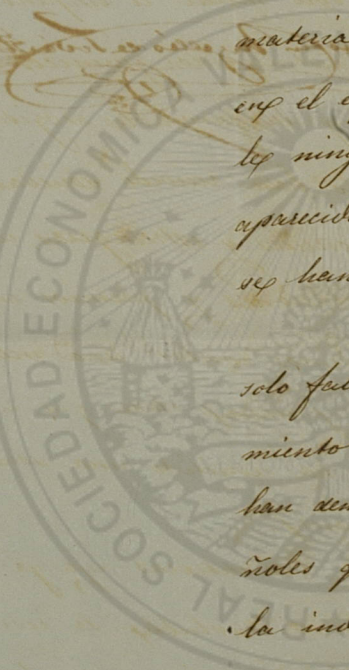 materia
en el e
le ning
aparecid
se han
solo fal
miento
han dem
ñoles q
la ind
REAL SOCIEDAD ECONOMICA VALE